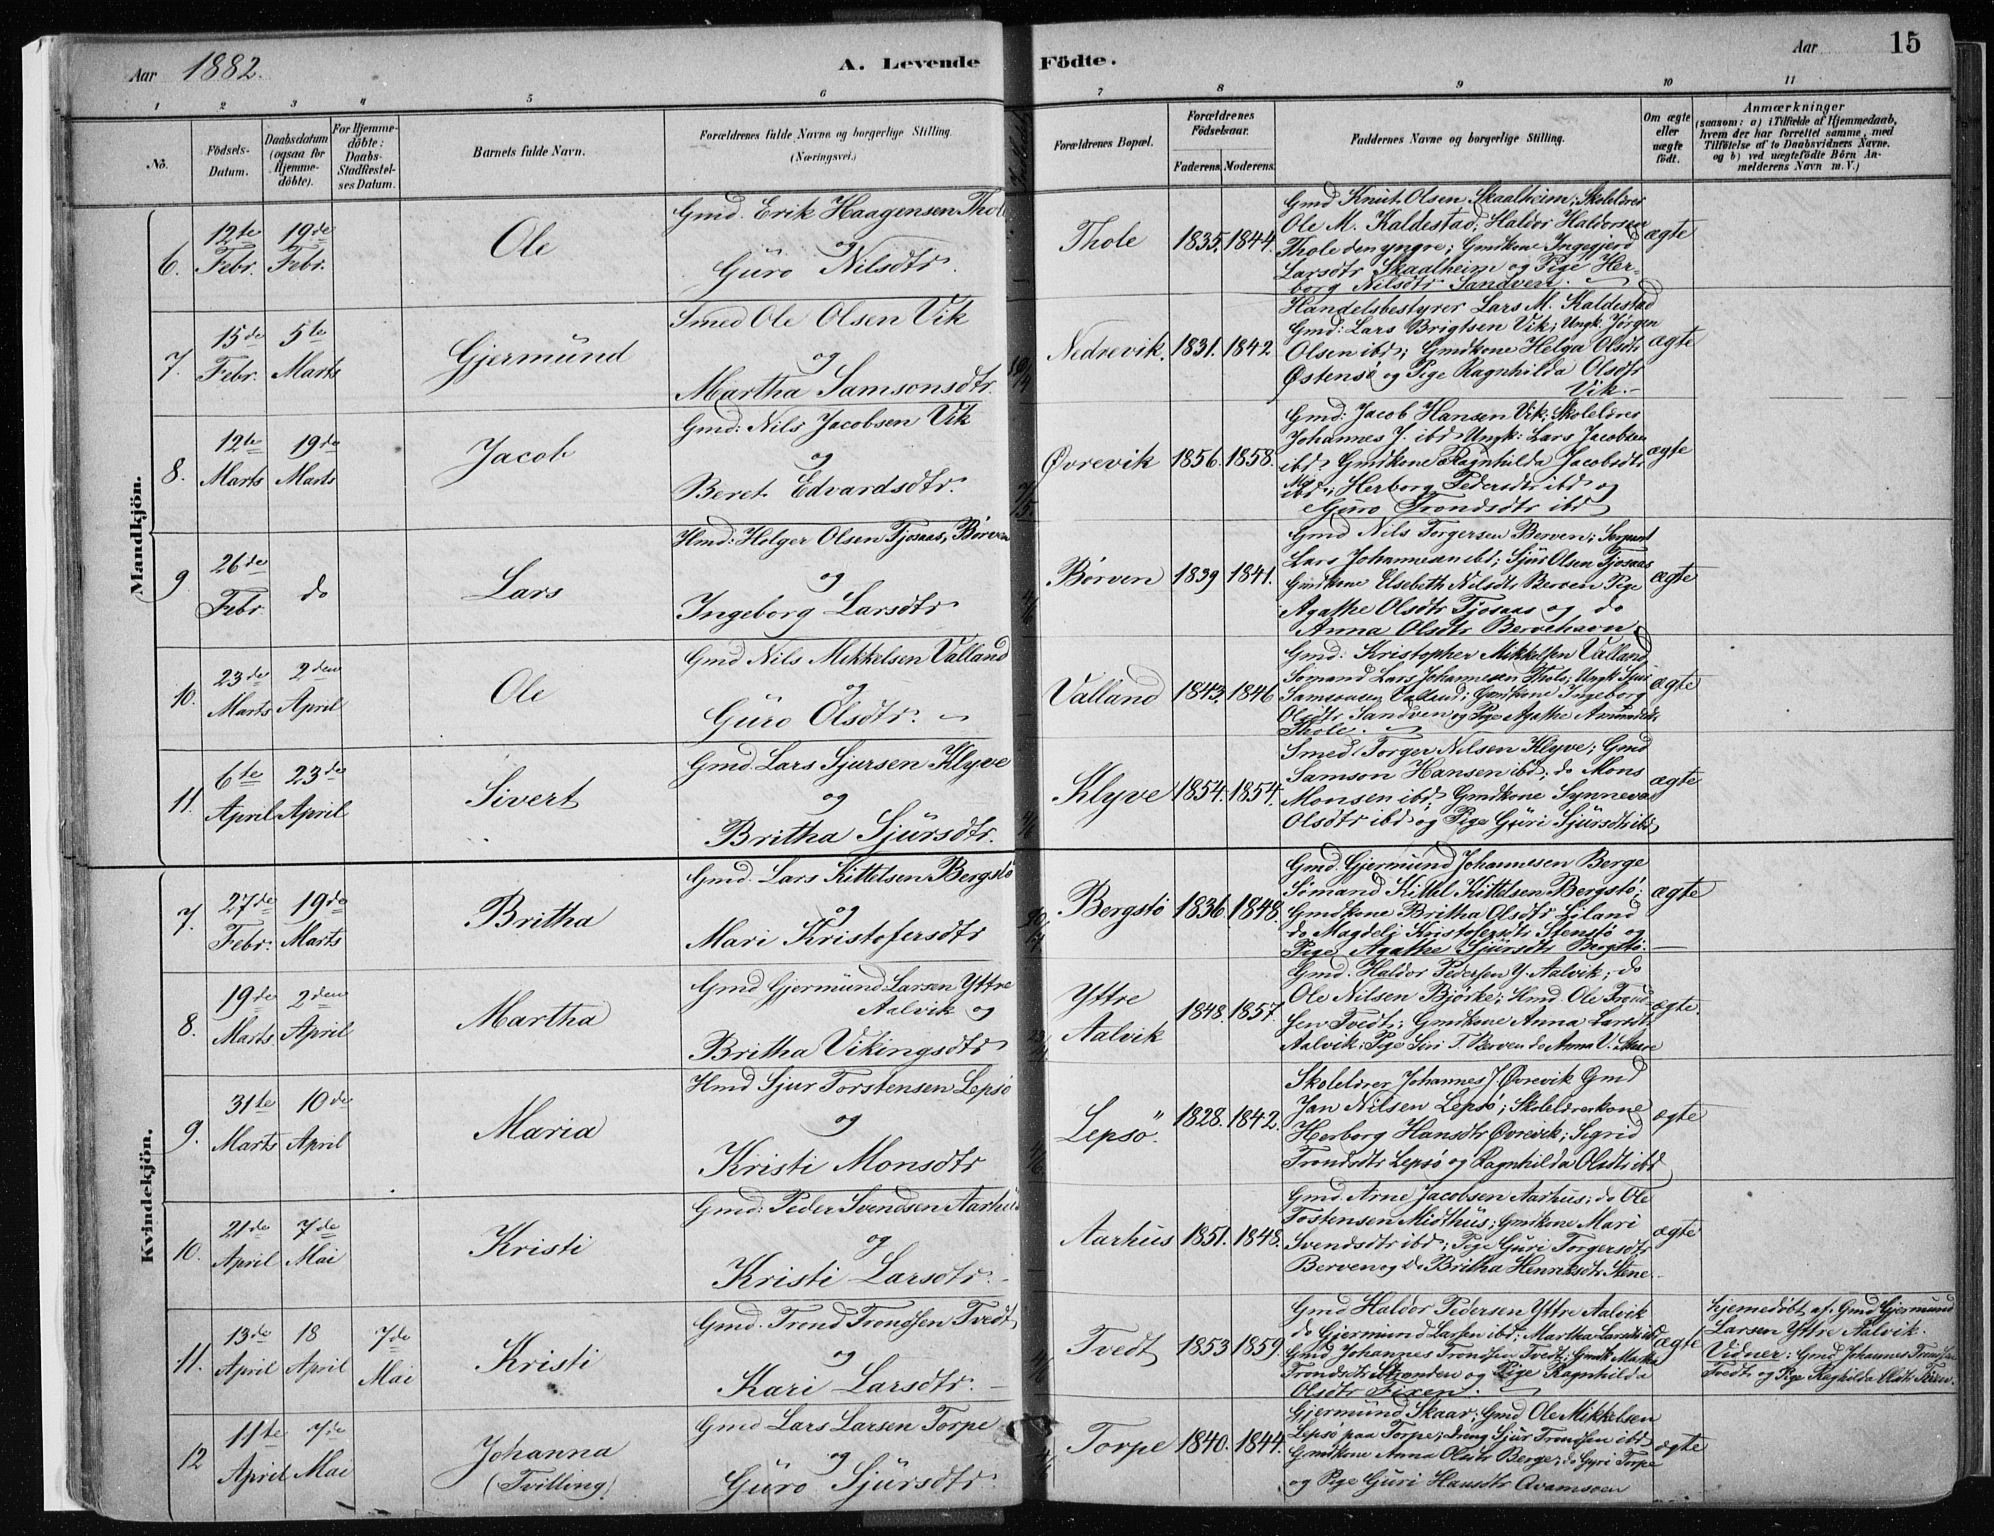 Aar 1882.
A. Levende Födte.
Aar
15
1 2 3 4 5 6 7 8 9 10 11
No.
Födsels-Datum.
Daabsdatum (ogsaa for Hjemme-döbte).
For Hjemme-döbte: Daabs-Stadfæstel-ses Datum.
Barnets fulde Navn.
Forældrenes fulde Navne og borgerlige Stilling. (Næringsvei.)
Forældrenes Bopæl.
Forældrenes Födselsaar.
Faderens. Moderens.
Faddernes Navne og borgerlige Stilling.
Om ægte eller uægte födt.
Anmærkninger
(saasom: a) i Tilfælde af Hjemmedaab,
hvem der har forrettet samme, med
Tilföielse af to Daabsvidners Navne.
og b) ved uægtefödte Börn An-
melderens Navn m. V.)
Mandkjön.
6. 12te Febr. 19de Febr. Ole
Gmd. Erik Haagensen Thole
og
Guro Nilsdtr.
Thole 1835. 1844.
Gmd Knut Olsen Skaalheim; Skolelærer
Ole M. Kaldestad; Haldor Haldorsen
Thole den yngre; Gmdkone Ingegjerd
Larsdtr Skaalheim og Pige Her-
borg Nilsdtr Sandven.
ægte
7. 15de Febr. 5te Marts Gjermund
Smed Ole Olsen Vik
og
Martha Samsonsdtr.
Nedrevik. 1831. 1842
Handelsbestyrer Lars M. Kaldestad
Gmd: Lars Brigtsen Vik; Ungk. Jørgen
Olsen ibd; Gmdkone Helga Olsdtr
Østensø og Pige Ragnhilda Olsdtr
Vik.
ægte
8. 12te Marts 19de Marts Jacob
Gmd: Nils Jacobsen Vik
og
Beret Edvardsdtr.
7/5
Øvrevik 1856. 1858.
Gmd: Jacob Hansen Vik; Skolelærer
Johannes J. ibd Ungk: Lars Jacobsen
ibd. Gmdkone Ragnhilda Jacobsdtr
ibd; Herborg Pedersdtr ibd og
Guro Trondsdtr ibd
ægte
9 26de Febr. do Lars
Hmd: Holger Olsen Tjosaas, Børven
og
Ingeborg Larsdtr
Børven 1839 1841.
Gmd Nils Torgersen Berven; Sergeant
Lars Johannesen ibd; Sjur Olsen Tjosaas
Gmdkone Elsebeth Nilsdtr Berven Pige
Agathe Olsdtr Tjosaas og do
Anna Olsdtr Bervehavn
ægte
10. 23de Marts 2den April Ole
Gmd Nils Mikkelsen Valland
og
Guro Olsdtr.
Valland 1843. 1846
Gmd: Kristopher Mikkelsen Valland
Sømand Lars Johannesen Thole; Ungk Sjur
Valland; Gmdkone Ingeborg
Olsdtr Sandven og Pige Agathe Amundsdtr
Thole.
ægte
11. 6te April 23de April Sivert
Gmd. Lars Sjursen Klyve
og
Britha Sjursdtr.
Klyve 1854. 1854.
Smed Torger Nilsen Klyve; Gmd
Samson Hansen ibd; do Mons
Monsen ibd; Gmdkone Synneva
Olsdtr ibd og Pige Guri Sjursdtr ibd
ægte
Kvindekjön.
7. 27de Febr. 19de Marts Britha
Gmd. Lars Kittelsen Bergstø
og
Mari Kristofersdtr
Bergstø 1836 1848.
Gmd. Gjermund Johannesen Berge
Sømand Kittel Kittelsen Bergstø;
Gmdkone Britha Olsdtr Liland
do Magdeli Kristofersdtr Stensø og
Pige Agathe Sjursdtr Bergstø.
ægte
8. 19de Marts 2den April Martha
Gmd Gjermund Larsen Yttre
Aalvik og
Britha Vikingsdtr
Yttre Aalvik 1848. 1857.
Gmd. Haldor Pedersen Y. Aalvik; do
Ole Nilsen Bjørke; Hmd. Ole Trond-
sen Tvedt; Gmdkone Anna Larsdtr
Aalvik; Pige Siri T. Berven do Anna V. Skaare
ægte.
9. 31te Marts 10de April Maria
Hmd Sjur Torstensen Lepsø
og
Kristi Monsdtr
Lepsø. 1828. 1842.
Skolelærer Johannes J Øvrevik Gmd
Jan Nilsen Lepsø; Skolelærerkone
Herborg Hansdtr Øvrevik; Sigrid
Trondsdtr Lepsø og Ragnhilda Olsdtr ibd
ægte
10. 21de April 7de Mai Kristi
Gmd: Peder Svendsen Aarhus
og
Kristi Larsdtr.
Aarhus 1851. 1848.
Gmd. Arne Jacobsen Aarhus; do Ole
Tostensen Midthus; Gmdkone Mari
Svendsdtr ibd; Pige Guri Torgersdtr
Berven og do Britha Henriksdtr Stene.
ægte
11. 13de April 18 April 7de Mai Kristi
Gmd. Trond Trondsen Tvedt
og
Kari Larsdtr.
Tvedt 1853 1859.
Gmd Haldor Pedersen Yttre Aalvik
do Gjermund Larsen ibd; Martha Larsdtr ibd
Gmd Johannes Trondsen Tvedt; Gmdk Martha
Trondsdtr Stranden og Pige Ragnhilda
Olsdtr Fixen.
ægte
Hjemedøbt af Gmd Gjermund
Larsen Yttre Aalvik.
Vidner: Gmd Johannes Trondsen
Tvedt og Pige Ragnhilda Olsdtr Fixen
12 11te April 7de Mai Johanna
(Tvilling)
Gmd Lars Larsen Torpe
og
Guro Sjursdtr.
Torpe 1840. 1844.
Gjermund Skaar; Gmd Ole Mikkelsen
Lepsø paa Torpe; Dreng Sjur Trondsen ibd;
Gmdkone Anna Olsdtr Berge; do Gyri Torpe
og Pige Guri Hansdtr
ægte